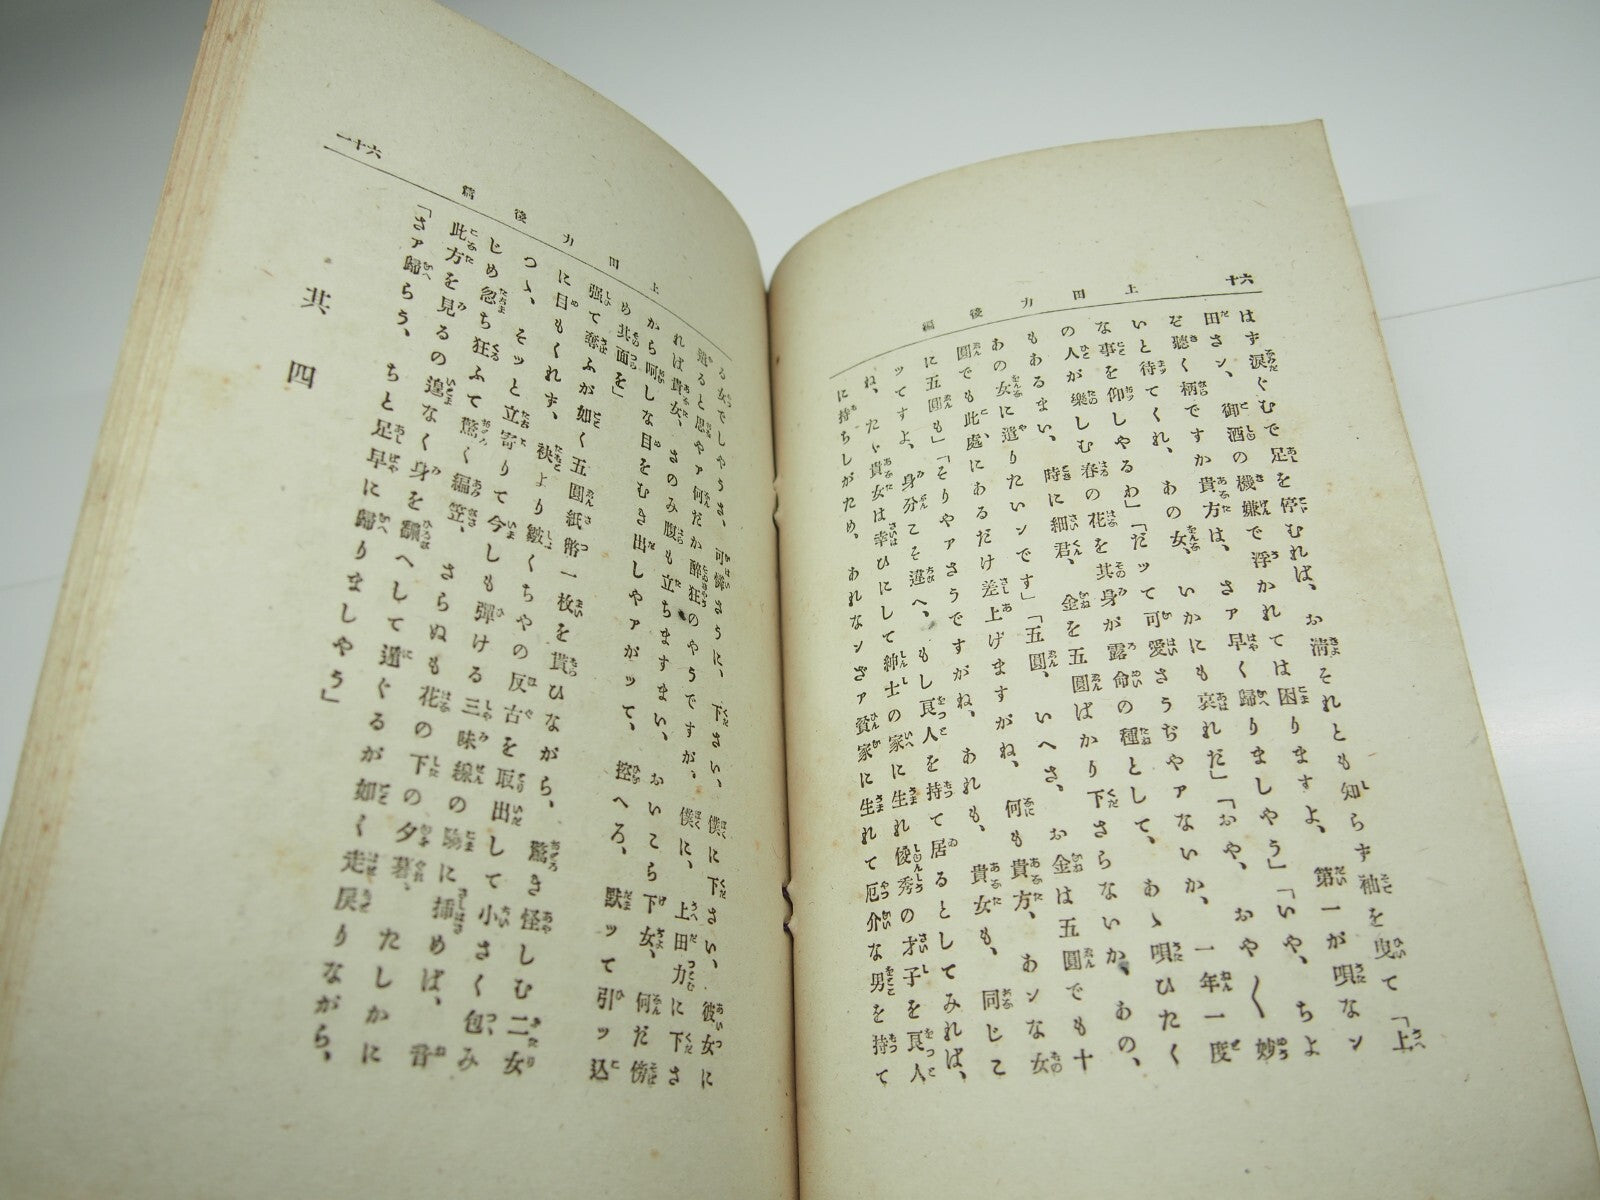 六十
上田力後編
はず涙ぐむで足を停むれば、お淸それとも知らず袖を曳て「上
田さン、御酒の機嫌で浮かれては困りますよ、第一が唄なン
ぞ聽く柄ですか貴方は、さァ早く歸りましやう」「いや、ちよ
いと待てくれ、あの女、いかにも哀れだ」「おや、おや〱妙
な事を仰しやるわ」「だッて可愛さうぢやァないか、一年一度
の人が樂しむ春の花を其身が露命の種として、あゝ唄ひたく
もあるまい、時に細君、金を五圓ばかり下さらないか、あの、
あの女に遣りたいンです」「五圓、いへさ、お金は五圓でも十
圓でも此處にあるだけ差上げますがね、何も貴方、あンな女
に五圓も」「そりやァさうですがね、あれも、貴女も、同じこ
ッてすよ、身分こそ違へ、もし良人を持て居るとしてみれば、
ね、たゞ貴女は幸ひにして紳士の家に生れ優秀の才子を良人
に持ちしがため、あれなンざァ貧家に生れて厄介な男を持て
六十一
上田力後編
る女でしやうさ、可憐さうに、下さい、僕に下さい、彼女に
遣ると思やァ何だか醉狂のやうですが、僕に、上田力に下さ
れば貴女、さのみ腹も立ちますまい、おいこら下女、何だ傍
から呵しな目をむき出しやァがッて、控へろ、默ッて引ッ込
め其面を」
强て奪ふが如く五圓紙幣一枚を貰ひながら、驚き怪しむ二女
に目もくれず、袂より皺くちやの反古を取出して小さく包み
つゝ、そッと立寄りて今しも彈ける三味線の駒に揷めば、音
じめ忽ち狂ふて驚く編笠、さらぬも花の下の夕暮、たしかに
此方を見るの遑なく身を飜へして遁ぐるが如く走戾りながら、
「さァ歸らう、ちと足早に歸りましやう」
其四